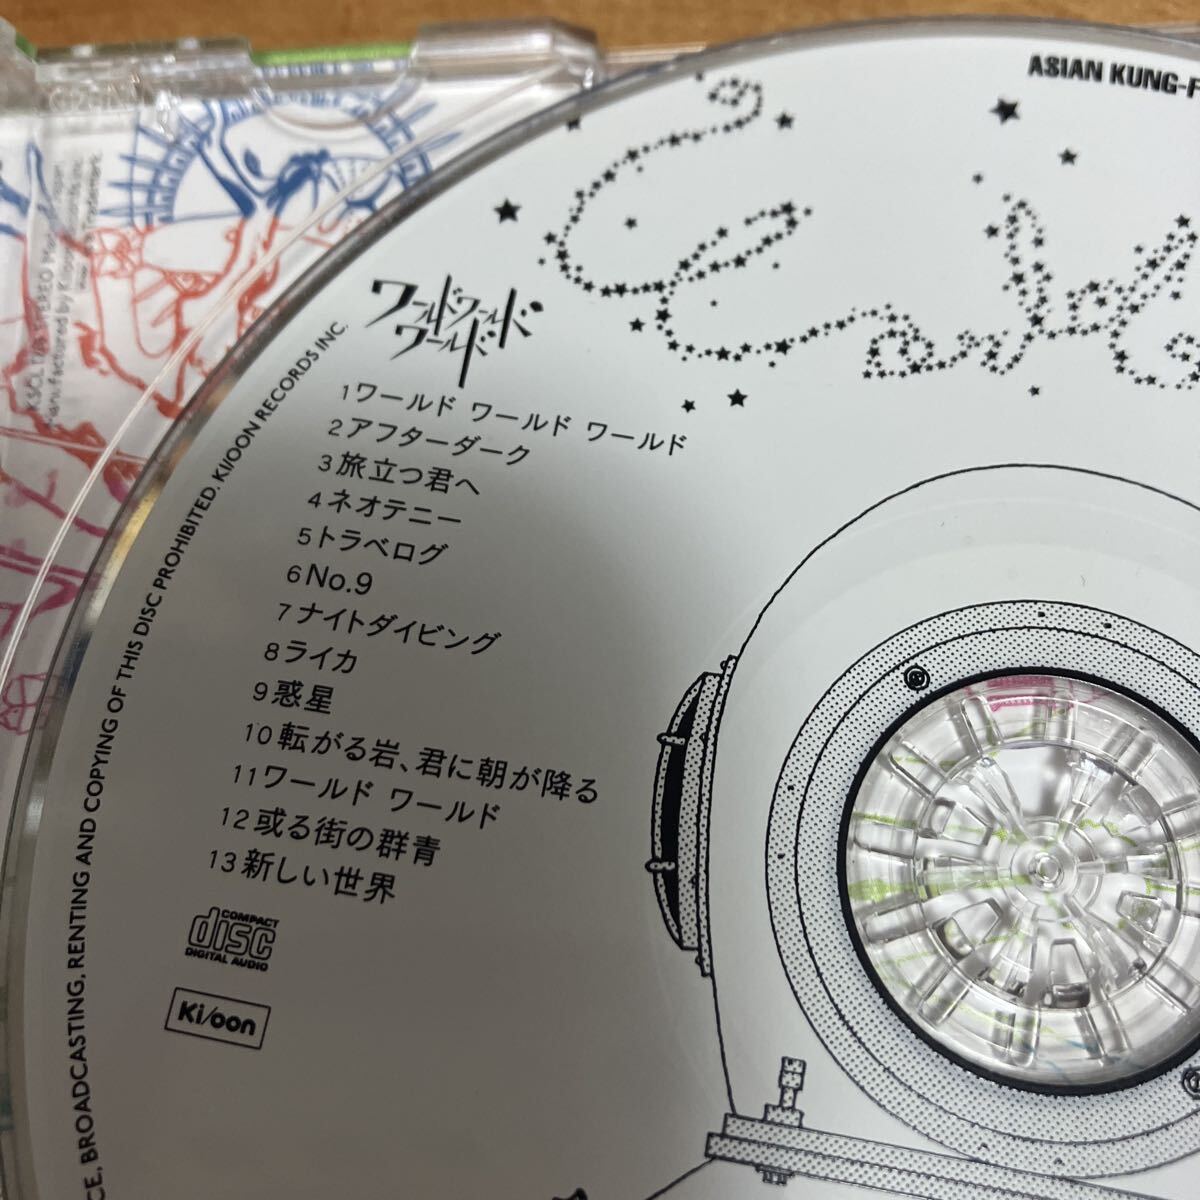 ASIAN KUNG-F
World
ワールドワールド
ワールド
1 ワールド ワールド ワールド
2 アフターダーク
3 旅立つ君へ
4 ネオテニー
5 トラベログ
6 No.9
7 ナイトダイビング
8 ライカ
9 惑星
10 転がる岩、君に朝が降る
11 ワールド ワールド
12 或る街の群青
13 新しい世界
COMPACT
disc
DIGITAL AUDIO
Ki/oon
CE, BROADCASTING, RENTING AND COPYING OF THIS DISC PROHIBITED. KI/OON RECORDS INC.
KSCL STEREO
Manufactured by Ki/oon Records Inc.